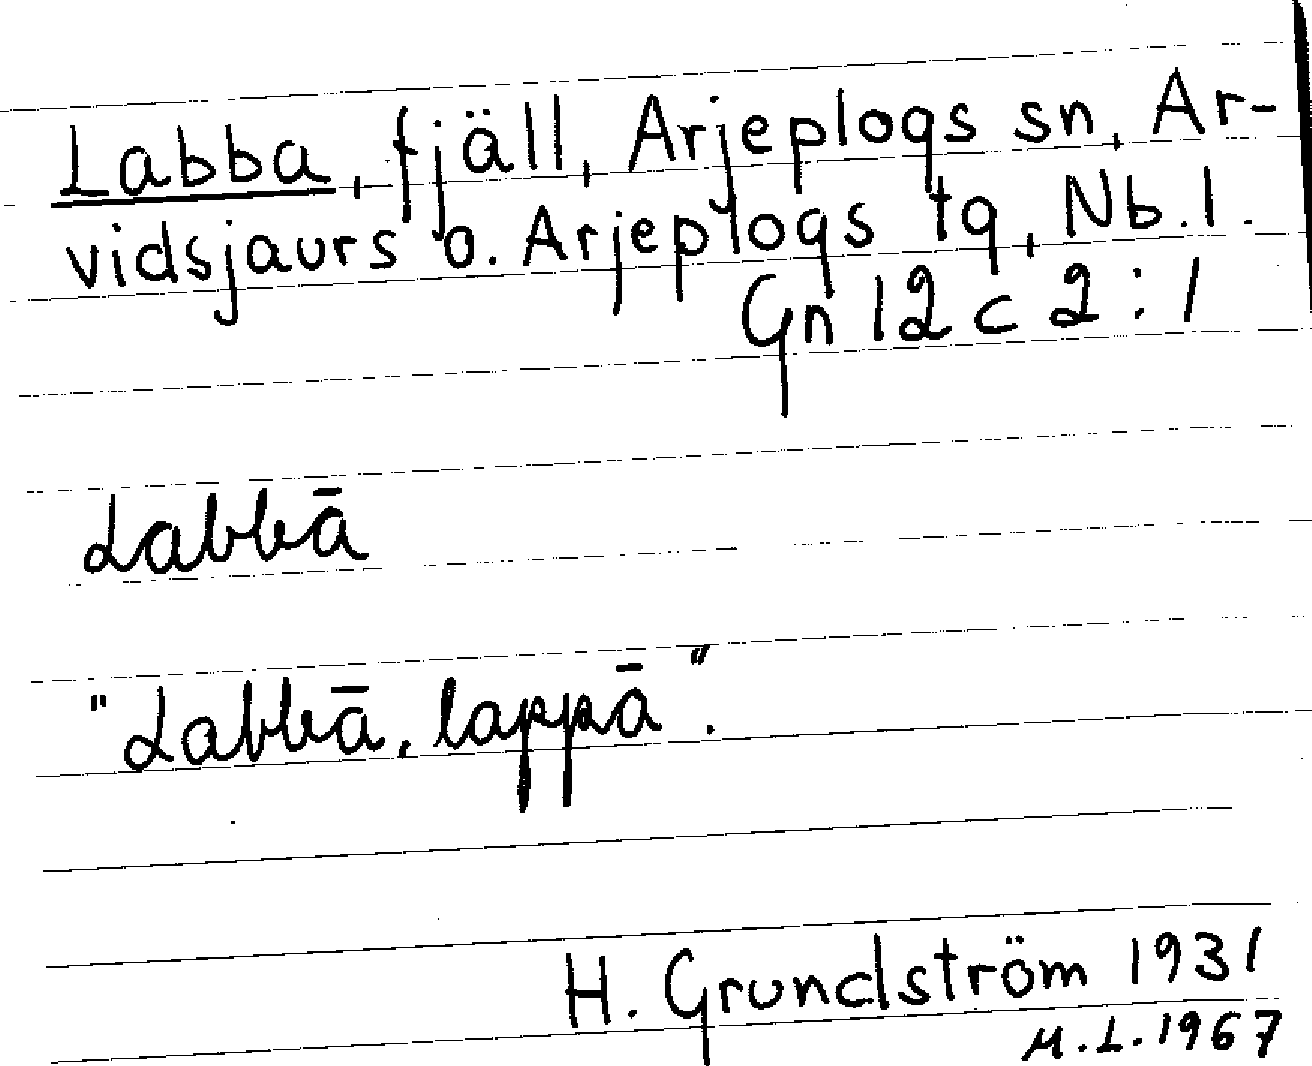 Labba, fjäll, Arjeplogs sn, Ar-
vidsjaurs o. Arjeplogs tg, Nb. l.
Gn 12 c 2 : 1
Labbā
"Labbā, lappā".
H. Grundström 1931
M.L. 1967